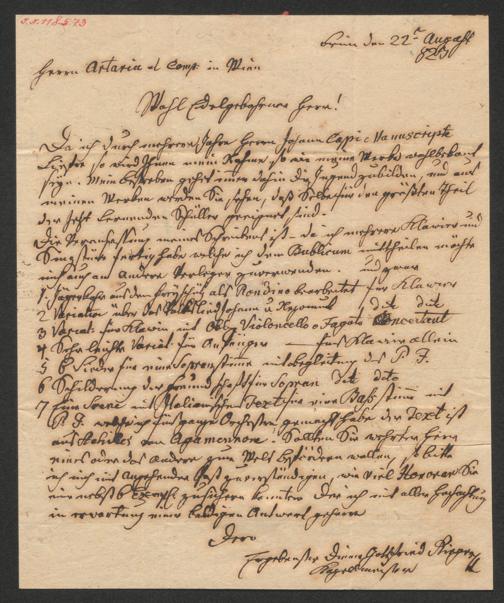 Brün den 22t August
823
Herrn Artaria et Comp. in Wien
Wohl Edelgebohrner Herr!
Da ich durch mehrere Jahre Herrn Johann Capi Manuscripte
so wird Ihnen mein Nahme so wie meine Werke wohl bekant
seyn. Mein bestreben geht immer dahin die Jugend zu bilden, und aus
meinen Werken werden Sie sehen, daß Selbe für den größten Theil
der Jetzt Lernenden Schüller geeignet sind.
Die Veranlassung meines Schreibens ist da ich mehrere Klavier und
Singstücke fertig habe welche ich dem Publicum mittheilen möchte
mich auch an Andere Verleger zu verwenden. und zwar
1 Jägerchor aus dem Freyschütz als Rondino bearbeitet für Klavier
2 Variation über das Volkslied dit dit
3 Variat. für Klavier mit Oblig Violoncello o Fagott Concertant
4 Sehr leichte Variat für Anfänger fürs Klavier allein
5 6 Lieder für eine Sopranstimme mit begleitung des P. F.
6 Schilderung der Freundschaft für Sopran dit dito
7 Eine Scene mit Italienischen Text für eine Baß stimme mit
P. F. welche ich fürs ganze Orchester gemacht habe der Text ist
aus Achilles von Agamennone. Sollten Sie wehrter Herr
eines oder das andere zum Welt befördern wollen, so bitte
ich mich mit Angehender Post zu verständigen, wie viel Honorar Sie
mir nebst 6 Exempl. zusichern könnten. Der ich mit aller Hochachtung
in erwartung einer baldigen Antwort geharre
Dero
Ergebenster Diener Gottfried Rieger
Kapellmeister